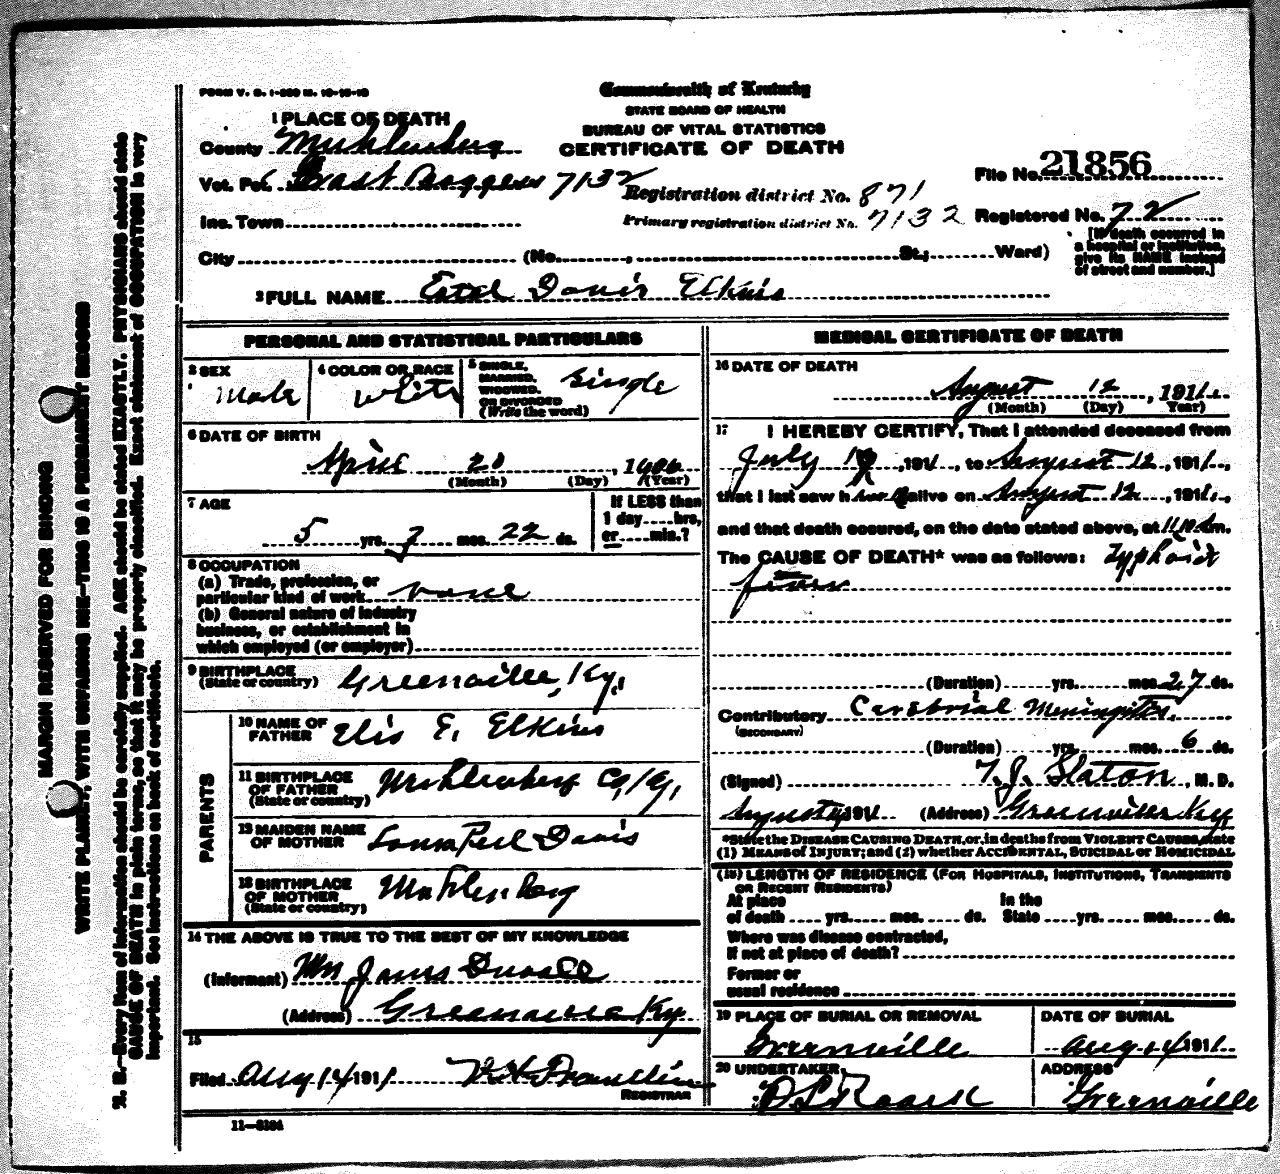 FORM V. S. 1-
Commonwealth of Kentucky
STATE BOARD OF HEALTH
BUREAU OF VITAL STATISTICS
CERTIFICATE OF DEATH
1 PLACE OF DEATH
County Muhlenberg
Vot. Pct. East 7132
Inc. Town
City (No. , St.; Ward)
Registration district No. 871
Primary registration district No. 7132
File No. 21856
Registered No. 72
[If death occurred in
a hospital or institution,
give its NAME instead
of street and number.]
2 FULL NAME Estel Davis Elkins
PERSONAL AND STATISTICAL PARTICULARS
3 SEX
Male
4 COLOR OR RACE
White
5 SINGLE,
MARRIED,
WIDOWED,
OR DIVORCED
(Write the word)
Single
6 DATE OF BIRTH
April 20, 1906
(Month) (Day) (Year)
7 AGE
5 yrs. 7 mos. 22 ds.
If LESS than
1 day hrs,
or min.?
8 OCCUPATION
(a) Trade, profession, or
particular kind of work none
(b) General nature of industry
business, or establishment in
which employed (or employer)
9 BIRTHPLACE
(State or country) Greenville, Ky.
PARENTS
10 NAME OF
FATHER Elis E. Elkins
11 BIRTHPLACE
OF FATHER
(State or country) Muhlenberg Co, Ky.
12 MAIDEN NAME
OF MOTHER Davis
13 BIRTHPLACE
OF MOTHER
(State or country) Muhlenberg
14 THE ABOVE IS TRUE TO THE BEST OF MY KNOWLEDGE
(Informant) James
(Address) Greenville Ky
15
Filed Aug 14 1911 Franklin
REGISTRAR
11—
MEDICAL CERTIFICATE OF DEATH
16 DATE OF DEATH
August 12, 1911
(Month) (Day) Year)
17 I HEREBY CERTIFY, That I attended deceased from
July 1911, to August 12, 1911,
that I last saw h alive on August 12, 1911,
and that death occured, on the date stated above, at m.
The CAUSE OF DEATH* was as follows: Typhoid
fever
(Duration) yrs. mos. 27 ds.
Contributory Cerebrial Meningitis.
(SECONDARY)
(Duration) yrs. mos. 6 ds.
(Signed) T. J. Slaton, M. D.
August 1911 (Address) Greenville Ky
*State the DISEASE CAUSING DEATH, or, in deaths from VIOLENT CAUSES, state
(1) MEANS of INJURY; and (2) whether ACCIDENTAL, SUICIDAL or HOMICIDAL
(18) LENGTH OF RESIDENCE (FOR HOSPITALS, INSTITUTIONS, TRANSIENTS
OR RECENT RESIDENTS)
At place In the
of death yrs. mos. ds. State yrs. mos. ds.
Where was disease contracted,
If not at place of death?
Former or
usual residence
19 PLACE OF BURIAL OR REMOVAL
Greenville
DATE OF BURIAL
Aug 14 1911
20 UNDERTAKER,
Roark
ADDRESS
Greenville
MARGIN RESERVED FOR BINDING
WRITE PLAINLY, WITH UNFADING INK—THIS IS A PERMANENT RECORD
N. B.—Every item of information should be carefully supplied. AGE should be stated EXACTLY. PHYSICIANS should state
CAUSE OF DEATH in plain terms, so that it may be properly classified. Exact statement of OCCUPATION is very
important. See instructions on back of certificate.